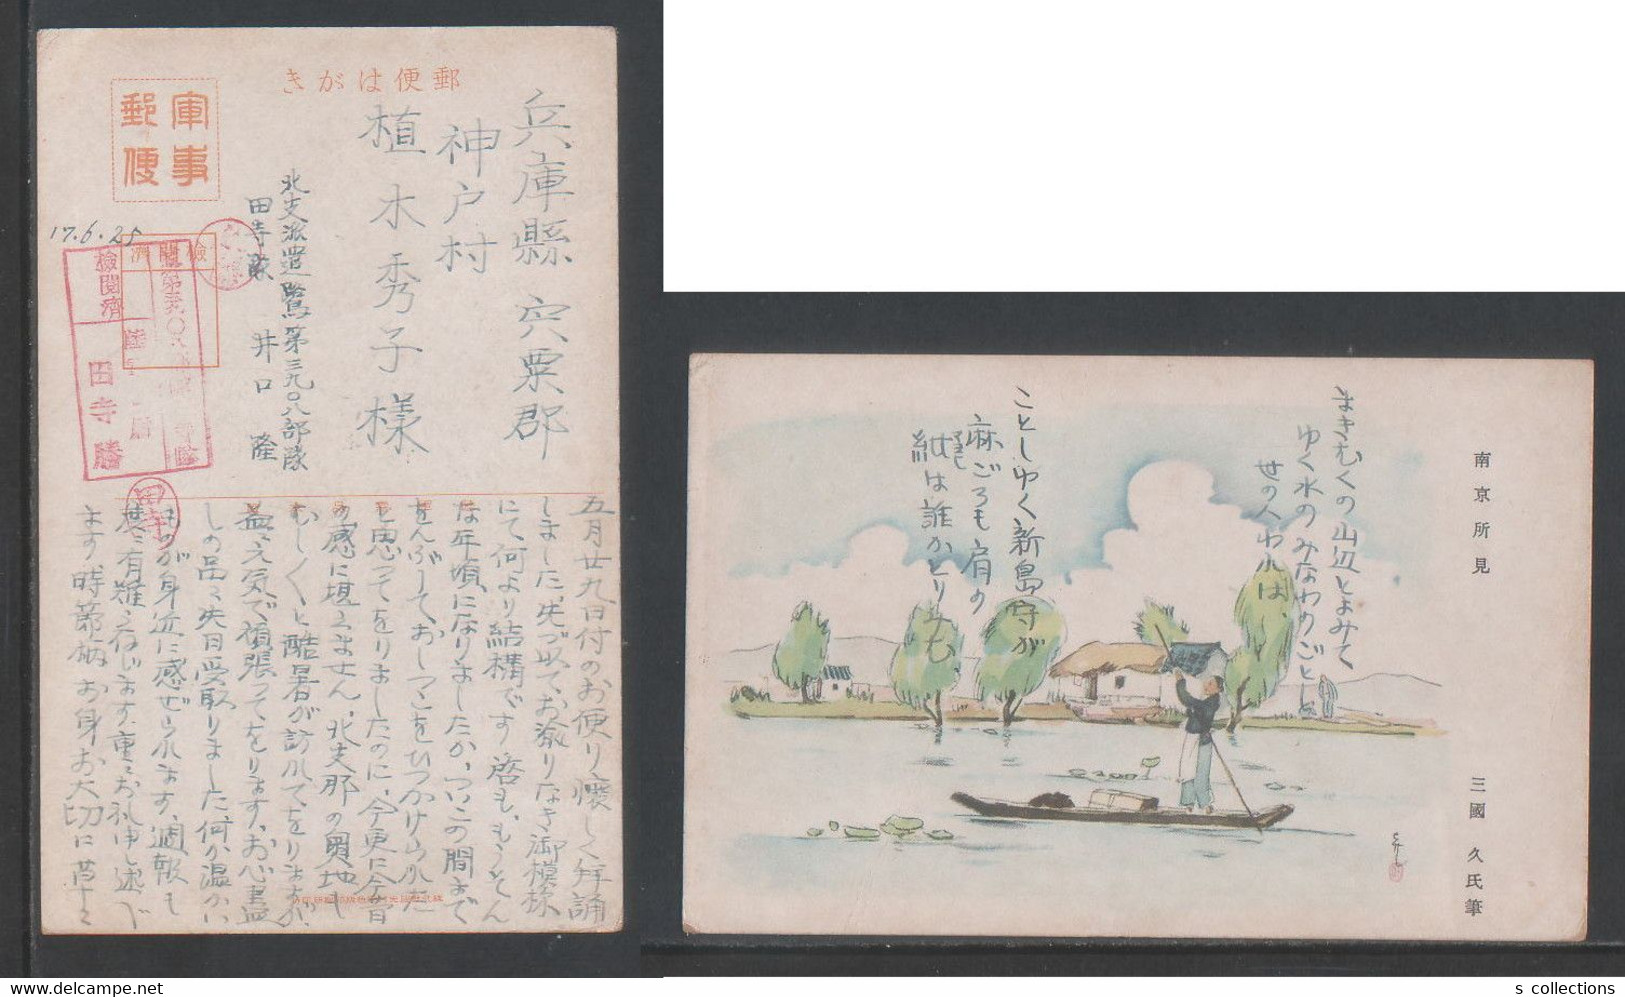 郵便はがき
軍事
郵便
兵庫縣宍粟郡
神戸村
植木秀子様
北支派遣鷺第三九〇八部隊
田寺隊 井口 隆
17.6.25
検閲済
検閲濟
田寺勝
田寺
五月廿九日付のお便り懐しく拝誦
しました、先づ以てお渝りなき御模様
にて何より結構です 啓も、もうそん
な年頃になりましたか、ついこの間まで
をんぶして、おしっこをひっかけられた
と思ってをりましたのに、今更に今昔
の感に堪えません、北支那の奥地に
むしく、と酷暑が訪れてをりますが
益々元気で頑張ってをります、お心盡
しの品々先日受取りました、何か温かい
ものが身近に感ぜられます、週報も
度々有難く存じます、重ねてお礼申し述べ
ます 時節柄お身お大切に 草々
まきむくの山辺とよみて
ゆく水のみなわのごとし
せの人われは、
ことしゆく新島守が
麻ごろも肩の
紕は誰かとり見む
南京所見
三國久氏筆
s collections